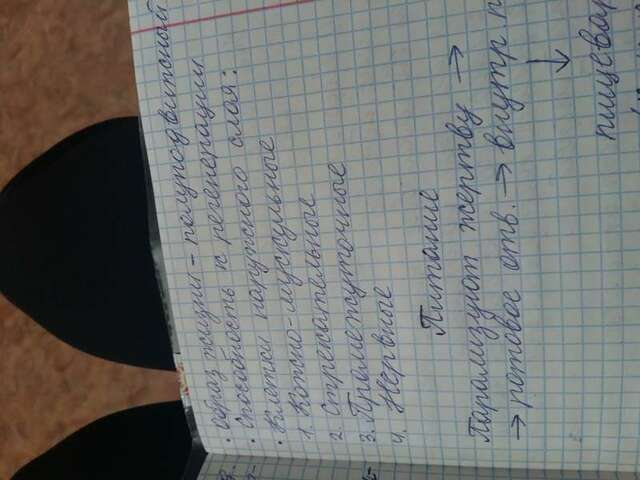 · Образ жизни - полуподвижный
· Способность к регенерации
· Клетки наружного слоя:
1. Кожно-мускульные
2. Стрекательные
3. Промежуточные
4. Нервные
Питание
Парализуют жертву →
→ ротовое отв. → внутр. п
↓
пищевар